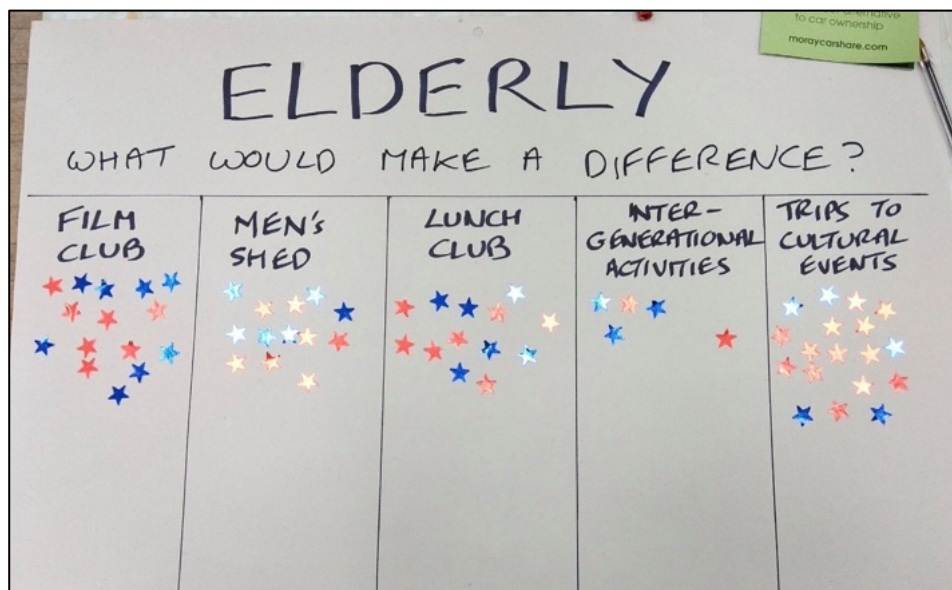 alternative
to car ownership
moraycarshare.com
ELDERLY
WHAT WOULD MAKE A DIFFERENCE?
FILM
CLUB
MEN'S
SHED
LUNCH
CLUB
INTER-
GENERATIONAL
ACTIVITIES
TRIPS TO
CULTURAL
EVENTS